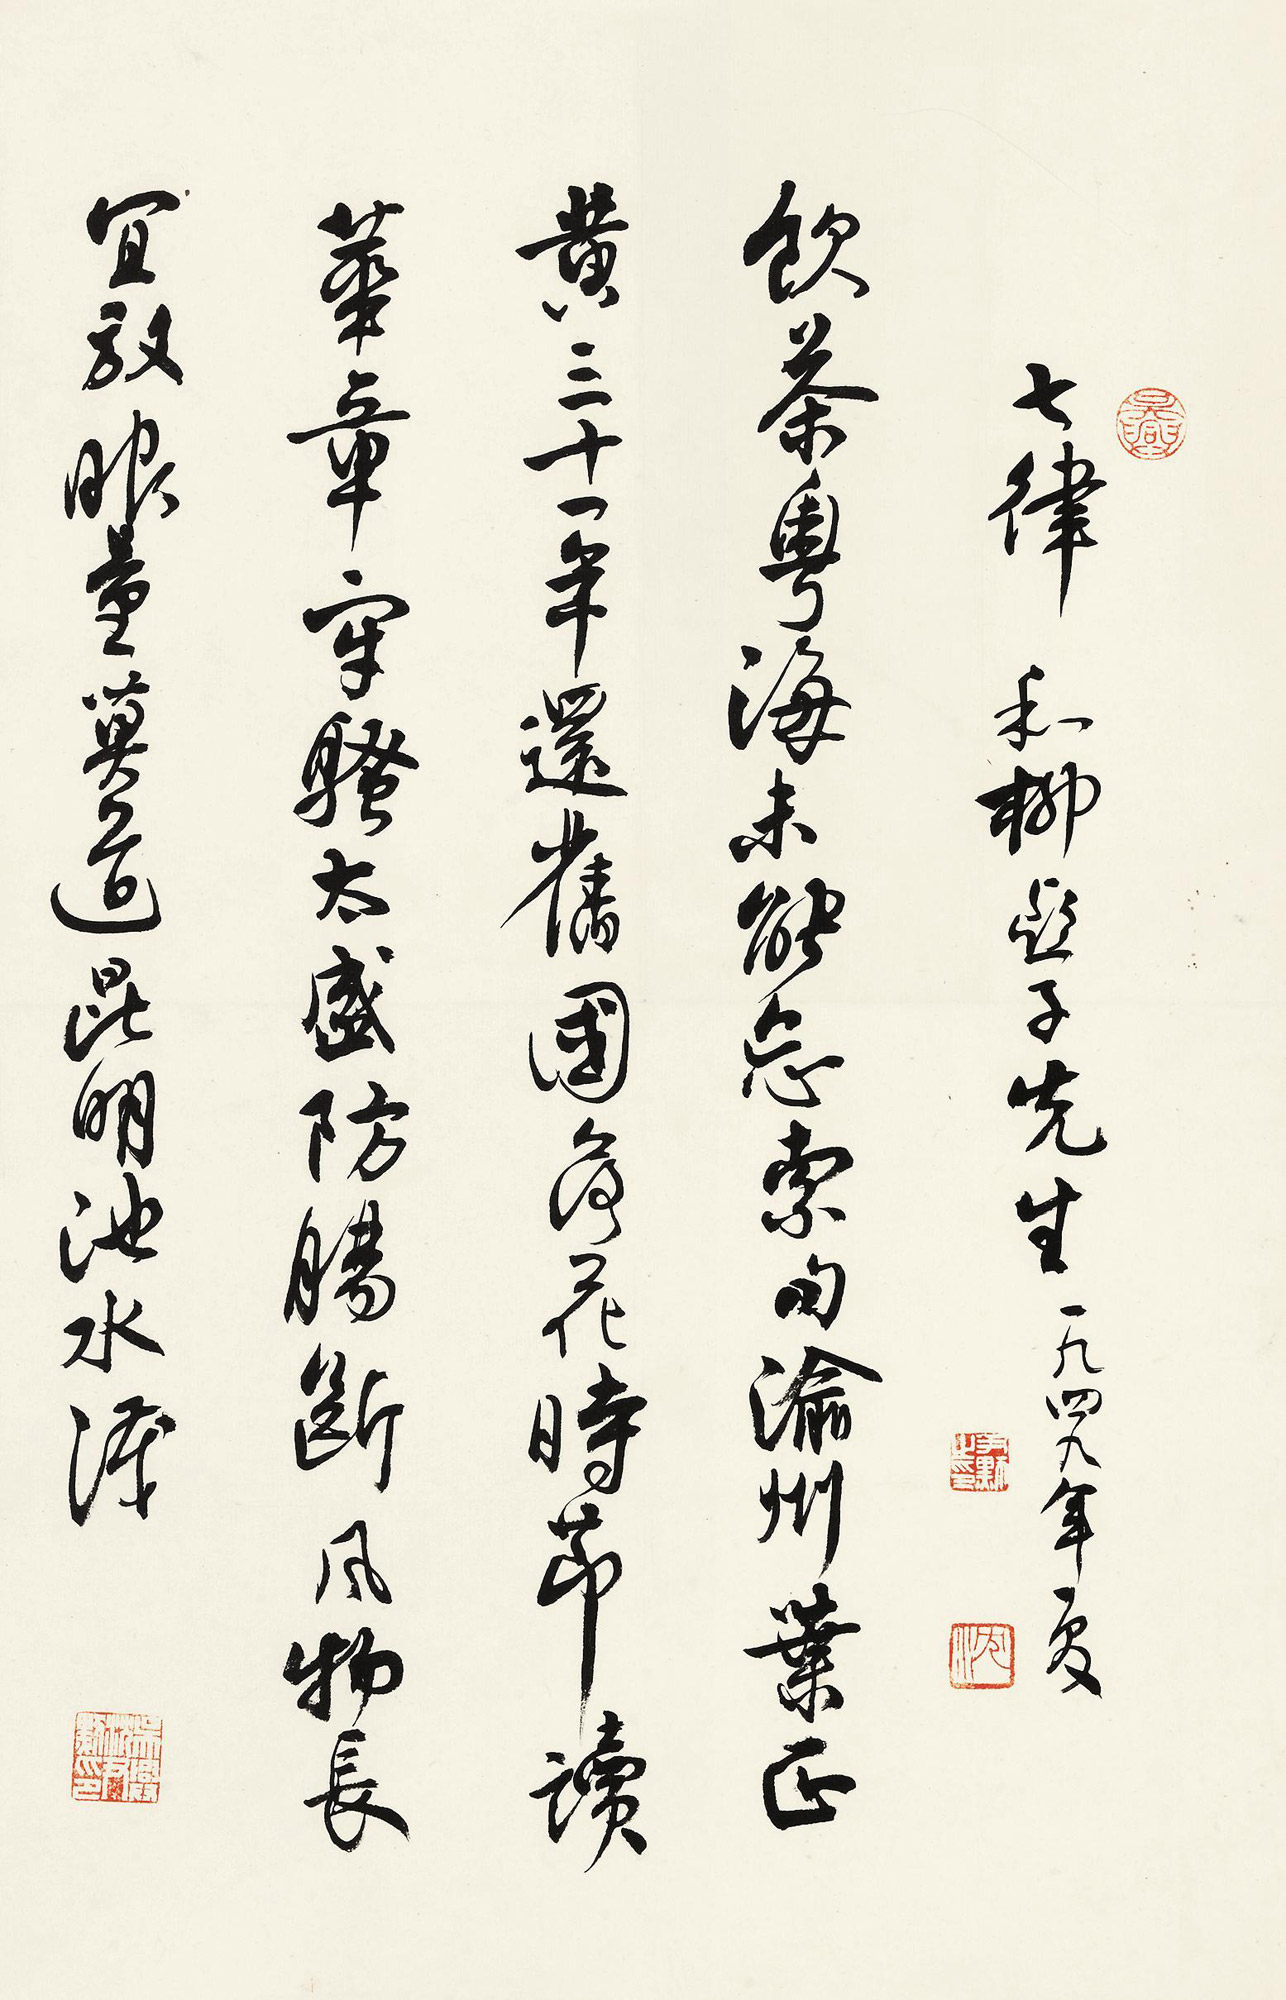 七律 和柳亞子先生 一九四九年夏
飲茶粵海未能忘索句渝州葉正
黃三十一年還舊國落花時節讀
華章牢騷太盛防腸斷風物長
宜放眼量莫道昆明池水淺
沈